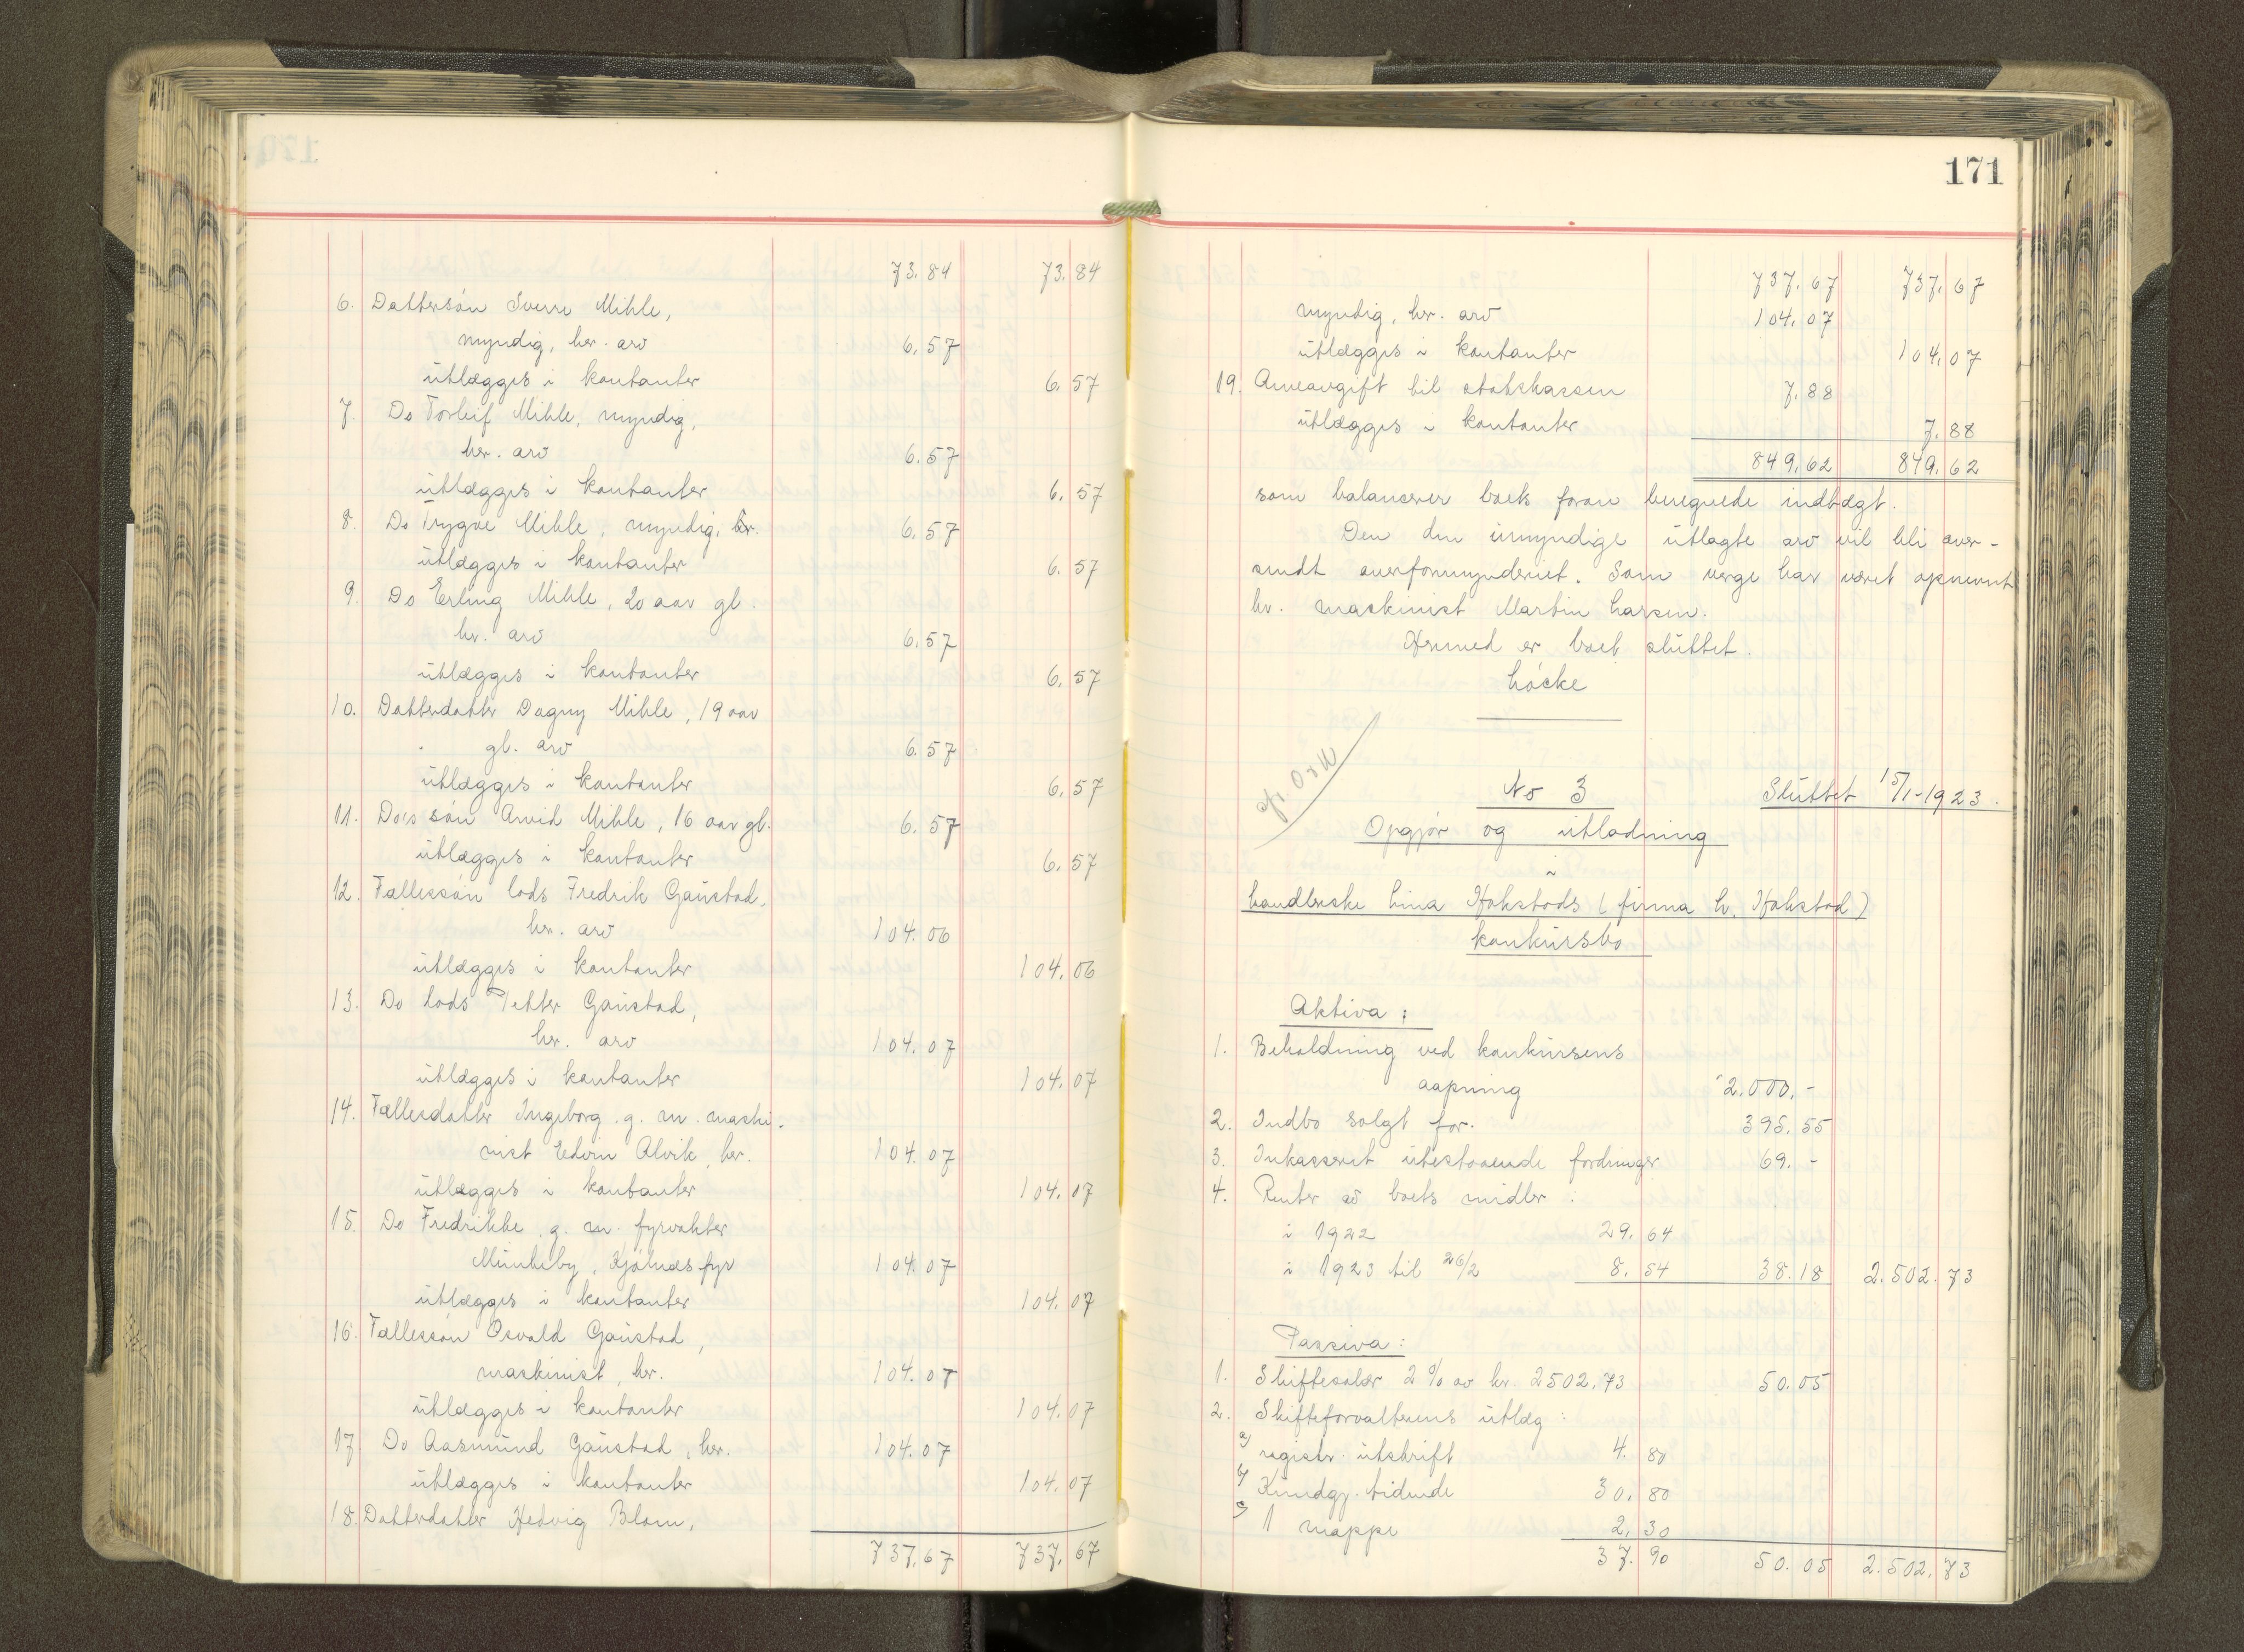 73.84 73.84
6. Dattersön Sverre Mihle,
myndig, her. arv 6.57
utlægges i kontanter 6.57
7. Do Torleif Mihle, myndig,
her. arv 6.57
utlægges i kontanter 6.57
8. Do Trygve Mihle, myndig, her. 6.57
utlægges i kontanter 6.57
9. Do Erling Mihle, 20 aar gl.
her. arv 6.57
utlægges i kontanter 6.57
10. Datterdatter Dagny Mihle, 19 aar
gl. arv 6.57
utlægges i kontanter 6.57
11. Do's sön Arvid Mihle, 16 aar gl. 6.57
utlægges i kontanter 6.57
12. Fællessön lods Fredrik Gaustad,
her. arv 104.06
utlægges i kontanter 104.06
13. Do lods Petter Gaustad,
her. arv 104.07
utlægges i kontanter 104.07
14. Fællesdatter Ingeborg g. m. maski-
nist Edvin Alvik, her. 104.07
utlægges i kontanter 104.07
15. Do Fredrikke g. m. fyrvokter
Munkeby, Kjölnæs fyr 104.07
utlægges i kontanter 104.07
16. Fællessön Osvald Gaustad,
maskinist, her. 104.07
utlægges i kontanter 104.07
17. Do Aasmund Gaustad, her. 104.07
utlægges i kontanter 104.07
18. Datterdatter Hedvig Blom,
737.67 737.67
171
737.67 737.67
myndig, her. arv 104.07
utlægges i kontanter 104.07
19. Arveavgift til statskassen 7.88
utlægges i kontanter 7.88
849.62 849.62
som balancerer boets foran beregnede indtægt.
Den den umyndige utlagte arv vil bli over-
sendt overformynderiet. Som verge har været opnevnt
hr. maskinist Martin Larsen.
Hermed er boet sluttet.
Löcke
No 3 Sluttet 15/1-1923.
Opgjör og utlodning
i
handlerske Lina Hokstads (firma L. Hokstad)
konkursbo
Aktiva:
1. Beholdning ved konkursens
aapning 2.000.-
2. Indbo solgt for. 395.55
3. Inkasseret utestaaende fordringer 69.-
4. Renter av boets midler:
i 1922 29.64
i 1923 til 26/2 8.54 38.18 2.502.73
Passiva:
1. Skiftesalær 2% av kr. 2502.73 50.05
2. Skifteforvalterens utlæg:
a) registr. utskrift 4.80
b) Kundgj. tidende 30.80
c) 1 mappe 2.30
37.90 50.05 2.502.73